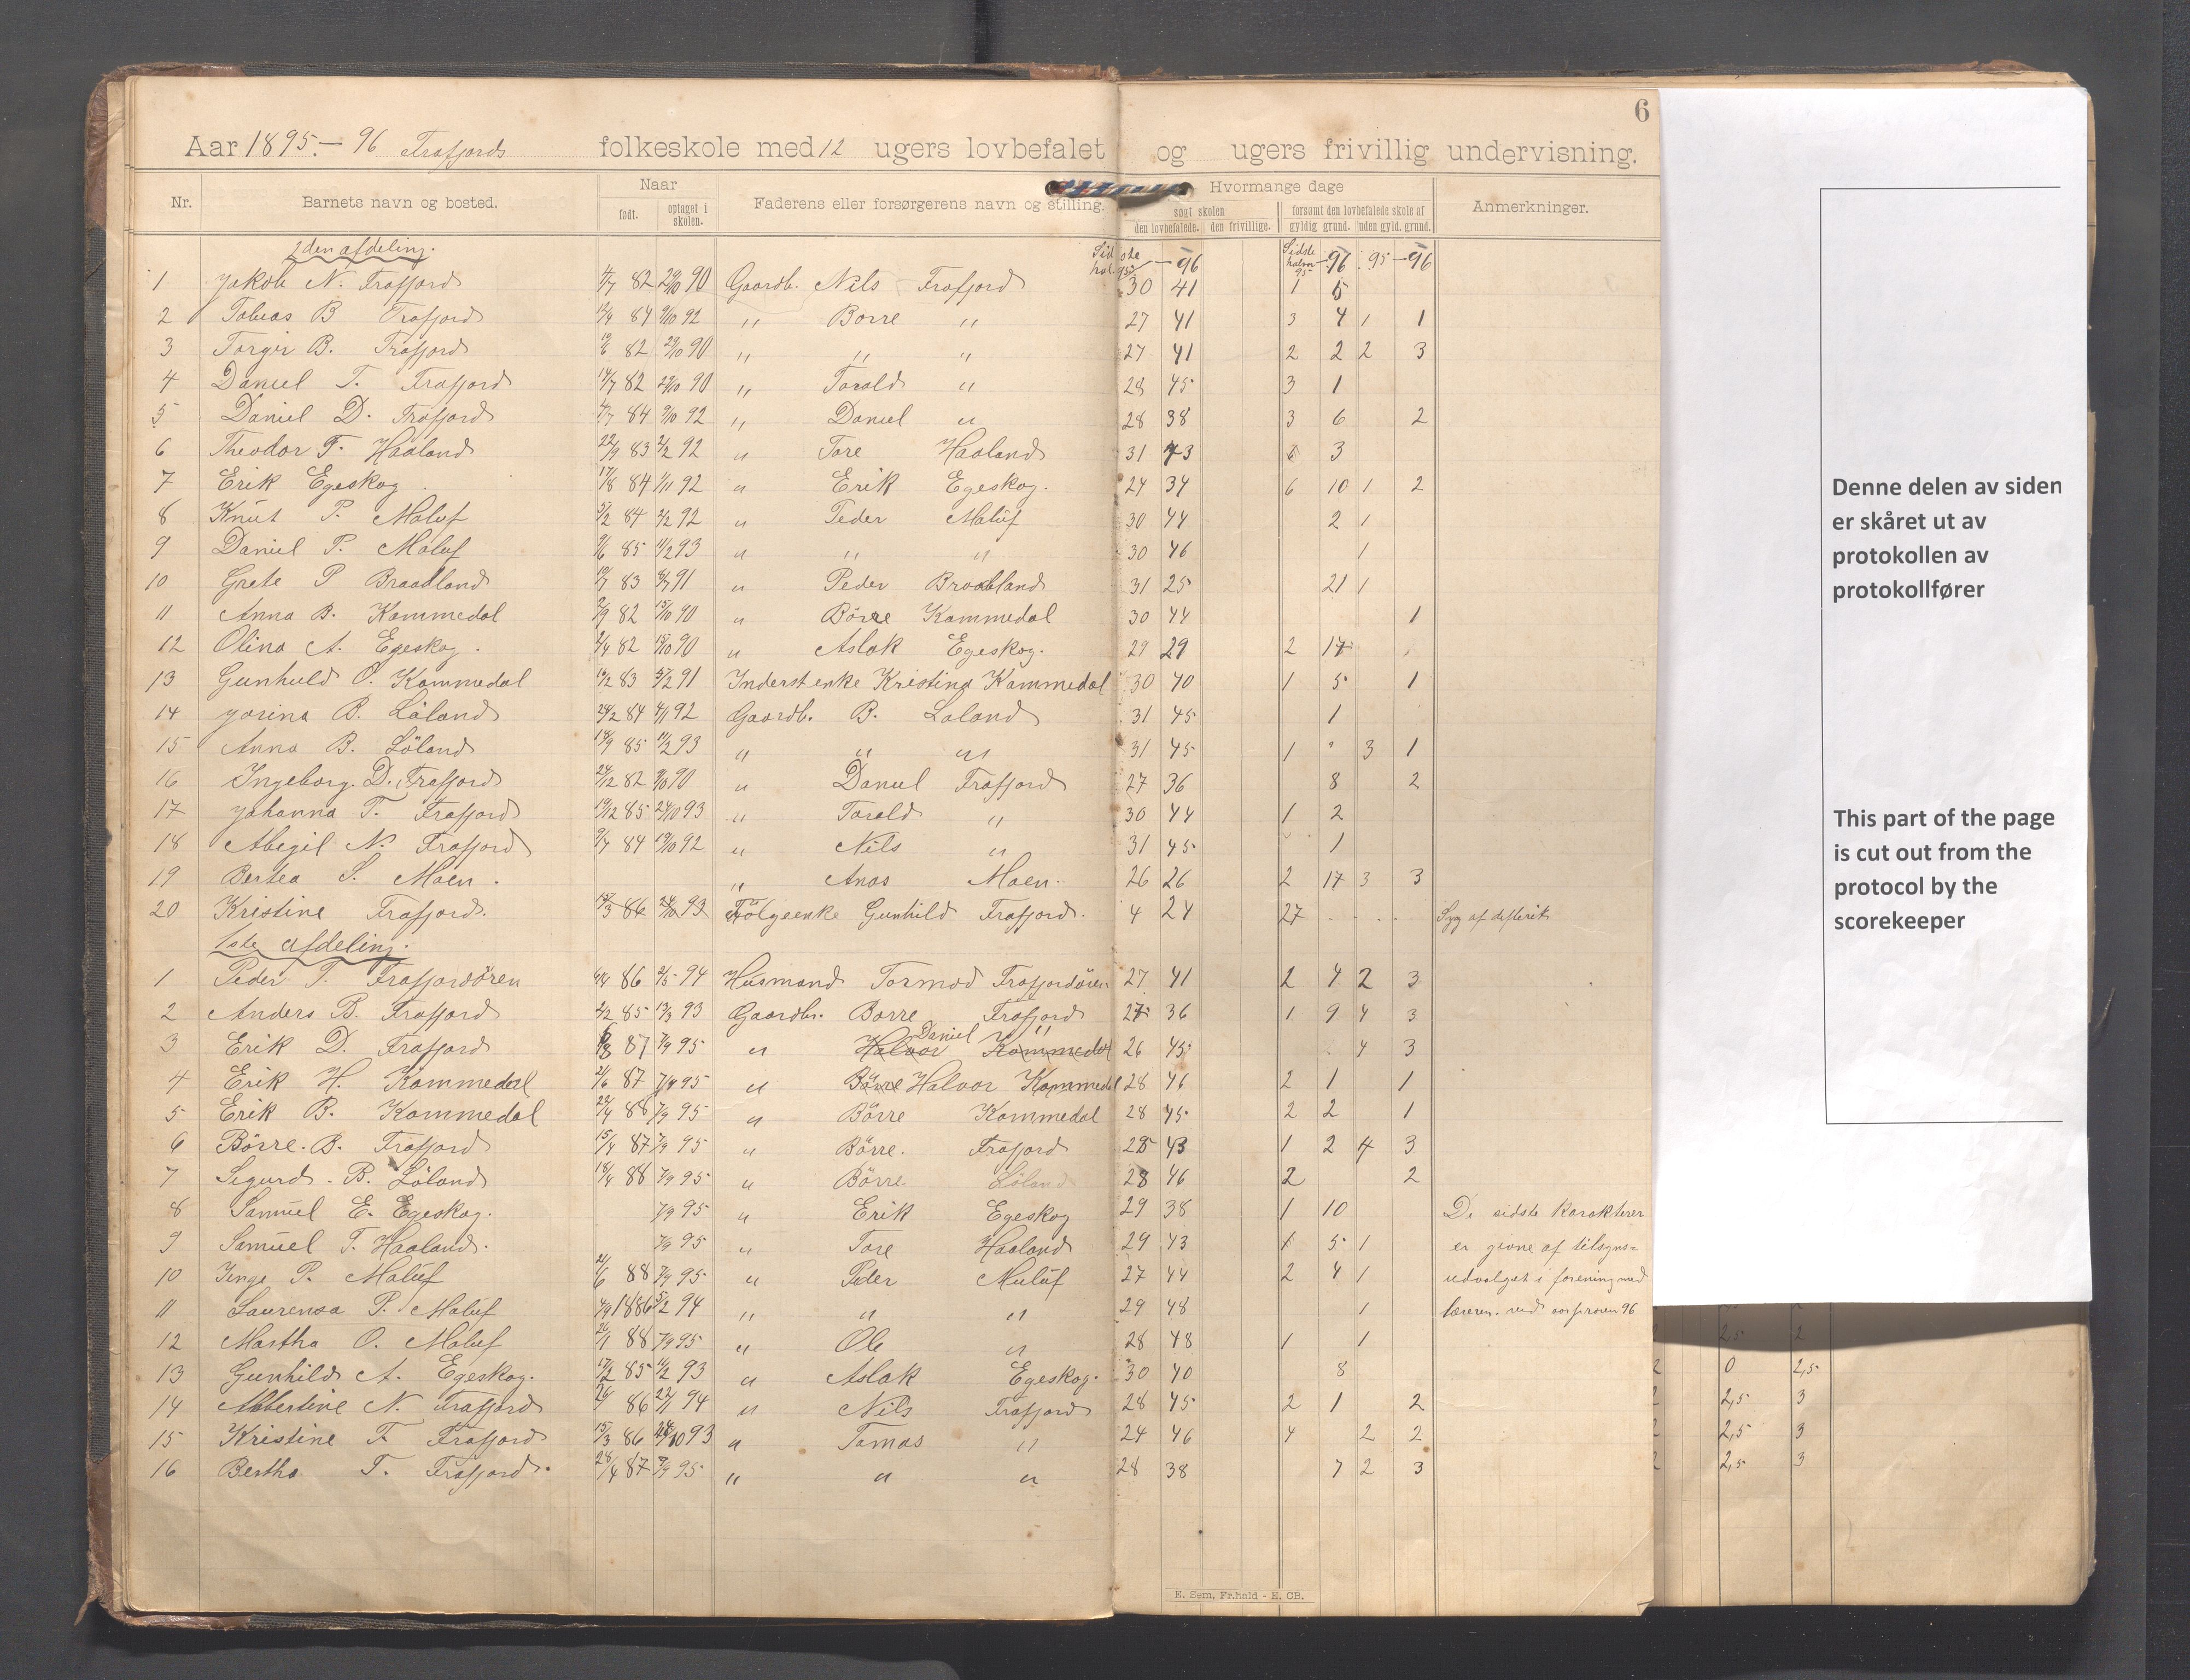 6
Aar 1895.- 96 Frafjords folkeskole med 12 ugers lovbefalet og ugers frivillig undervisning.
Nr. Barnets navn og bosted. Naar Faderens eller forsørgerens navn og stilling. Hvormange dage Anmerkninger.
født. optaget i skolen. søgt skolen forsømt den lovbefalede skole af
den lovbefalede. den frivillige. gyldig grund. uden gyld. grund.
2den afdeling. Sidste halvr 95 -96 Sidste halvr 95 -96 95 -96
1 Jakob N. Frafjord 4/7 82 29/10 90 Gaardb. Nils Frafjord 30 41 1 5
2 Tobias B Frafjord 84 9/10 92 " Børre " 27 41 3 4 1 1
3 Torger B. Frafjord 82 29/10 90 " " " 27 41 2 2 2 3
4 Daniel T. Frafjord 14/7 82 29/10 90 " Torald " 28 45 3 1
5 Daniel D. Frafjord 4/7 84 9/10 92 " Daniel " 28 38 3 6 2
6 Theodor T. Haaland 22/9 83 2/2 92 " Tore Haaland 31 43 3
7 Erik Egeskog 17/8 84 1/11 92 " Erik Egeskog. 24 34 6 10 1 2
8 Knut P. Maluf 5/2 84 2/2 92 " Peder Maluf 30 44 2 1
9 Daniel P. Maluf 9/6 85 11/2 93 " " " 30 46 1
10 Grete P Braadland 83 91 " Peder Braadland 31 25 21 1
11 Anna B. Kommedal 2/9 82 15/10 90 " Børre Kommedal 30 44 1
12 Olina A. Egeskog. 2/4 82 15/10 90 " Aslak Egeskog. 29 29 2 17
13 Gunhuld O. Kommedal 83 91 Inderstenke Kristina Kommedal 30 40 1 5 1
14 Josina B. Løland 24/2 84 4/1 92 Gaardb. B. Løland 31 45 1
15 Anna B. Løland 18/9 85 11/2 93 " " " 31 45 1 " 3 1
16 Ingeborg. D. Frafjord 24/12 82 90 " Daniel Frafjord 27 36 8 2
17 Johanna T. Frafjord 19/12 85 24/10 93 " Torald " 30 44 1 2
18 Abegil N. Frafjord 9/7 84 19/10 92 " Nils " 31 45 1
19 Bertea S. Moen. " Anas Moen. 26 26 2 17 3 3
20 Kristine Frafjord. 15/3 86 24/10 93 Følgeenke Gunhild Frafjord. 4 24 27 Syg af difterit
1ste afdeling.
1 Peder T. Frafjordøren 86 2/5 94 Husmand Tormod Frafjordøren 27 41 2 4 2 3
2 Anders B. Frafjord 2/2 85 13/3 93 Gaardbr. Børre Frafjord 27 36 1 9 4 3
3 Erik D. Frafjord 87 7/9 95 " Halvor Daniel Kommedal 26 45 4 3
4 Erik H. Kommedal 2/6 87 7/9 95 " Børre Halvor Kommedal 28 46 2 1 1
5 Erik B. Kommedal 22/4 88 7/9 95 " Børre Kommedal 28 45 2 2 1
6 Børre. B. Frafjord 15/4 87 7/9 95 " Børre. Frafjord 25 43 1 2 4 3
7 Sigurd. B. Løland 18/4 88 7/9 95 " Børre Løland 28 46 2 2
8 Samuel E. Egeskog. 7/9 95 " Erik Egeskog 29 38 1 10 De sidste karakterer
9 Samuel T. Haaland. 7/9 95 " Tore Haaland 29 43 1 5 1 er givne af tilsyns=
10 Inga P. Maluf 88 7/9 95 " Peder Maluf 27 44 2 4 1 udvalget i forening med
11 Laurensa P. Maluf 1886 5/2 94 " " " 29 48 1 læreren. ved vaarprøven 96
12 Martha O. Maluf 26/1 88 7/9 95 " Ole " 28 48 1 1
13 Gunhild A. Egeskog. 17/2 85 11/2 93 " Aslak Egeskog. 30 40 8
14 Abbertine N. Frafjord 86 94 " Nils Frafjord 28 45 2 1 2
15 Kristine T. Frafjord 15/3 86 24/10 93 " Tomas " 24 46 4 2 2
16 Bertha T. Frafjord. 28/4 87 7/9 95 " " " 28 38 7 2 3
E. Sem, Fr.hald - E. CB.
Denne delen av siden
er skåret ut av
protokollen av
protokollfører
This part of the page
is cut out from the
protocol by the
scorekeeper
2,5 2
2 0 2,5
2 2,5 3
2 2,5 3
2 2,5 3